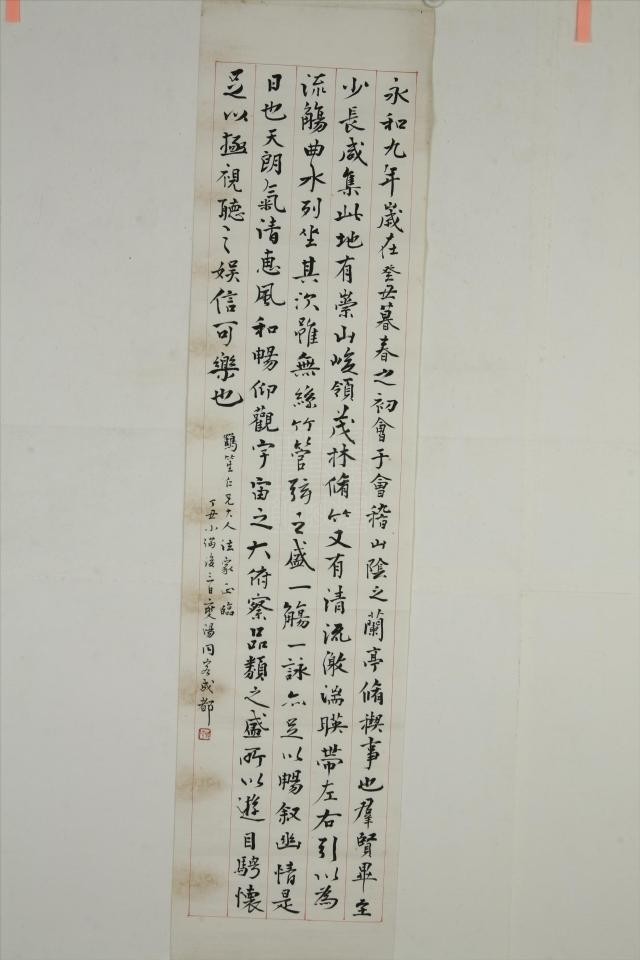 永和九年歲在癸丑暮春之初會于會稽山陰之蘭亭脩稧事也羣賢畢至
少長咸集此地有崇山峻領茂林脩竹又有清流激湍暎帶左右引以為
流觴曲水列坐其次雖無絲竹管弦之盛一觴一詠亦足以暢叙幽情是
日也天朗氣清惠風和暢仰觀宇宙之大俯察品類之盛所以遊目騁懷
足以極視聽之娛信可樂也
笙仁兄大人法家正臨
丁丑小滿後三日湯同客成都